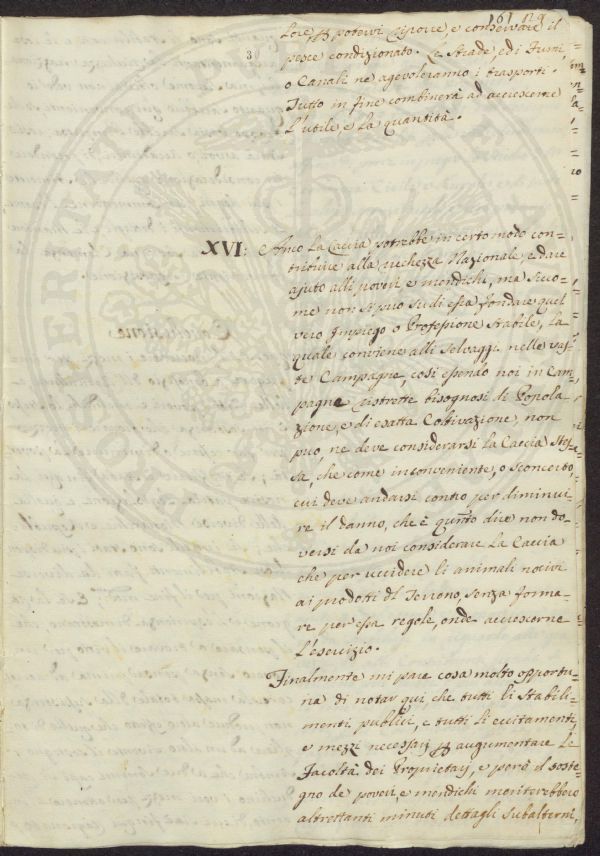 161 129
lore p potervi riporre, e conservare il
pesce condizionato. Le strade, ed i Fiumi
o Canali ne agevoleranno i trasporti.
Tutto in fine combinerà ad accrescerne
l'utile, e la quantità.
XVI: Anco la Caccia potrebbe in certo modo con=
tribuire alla richezza Nazionale, e dare
ajuto alli poveri e mendichi, ma sicco=
me non si può su di essa fondare quel
vero Impiego o Professione stabile, la
quale conviene alli selvaggi nelle vas=
te Campagne, così essendo noi in Cam=
pagne ristrette bisognosi di Popola
zione, e di esatta Coltivazione, non
può, ne deve considerarsi la Caccia stes=
sa, che come inconveniente, o sconcerto,
cui deve andarsi contro per diminui
re il danno, che è qunto dire non do=
versi da noi considerare la Caccia
che per uccidere li animali nocivi
ai prodotti dl Terreno, senza forma=
re per essa regole, onde accrescerne
l'esercizio.
Finalmente mi pare cosa molto opportu=
na di notar qui, che tutti li stabili=
menti publici, e tutti li eccitamenti,
e mezzi necessarj p augumentare le
Facoltà dei Proprietarj, e però il soste
gno de poveri, e mendichi meriterebbero
altrettanti minuti dettagli subalterni,